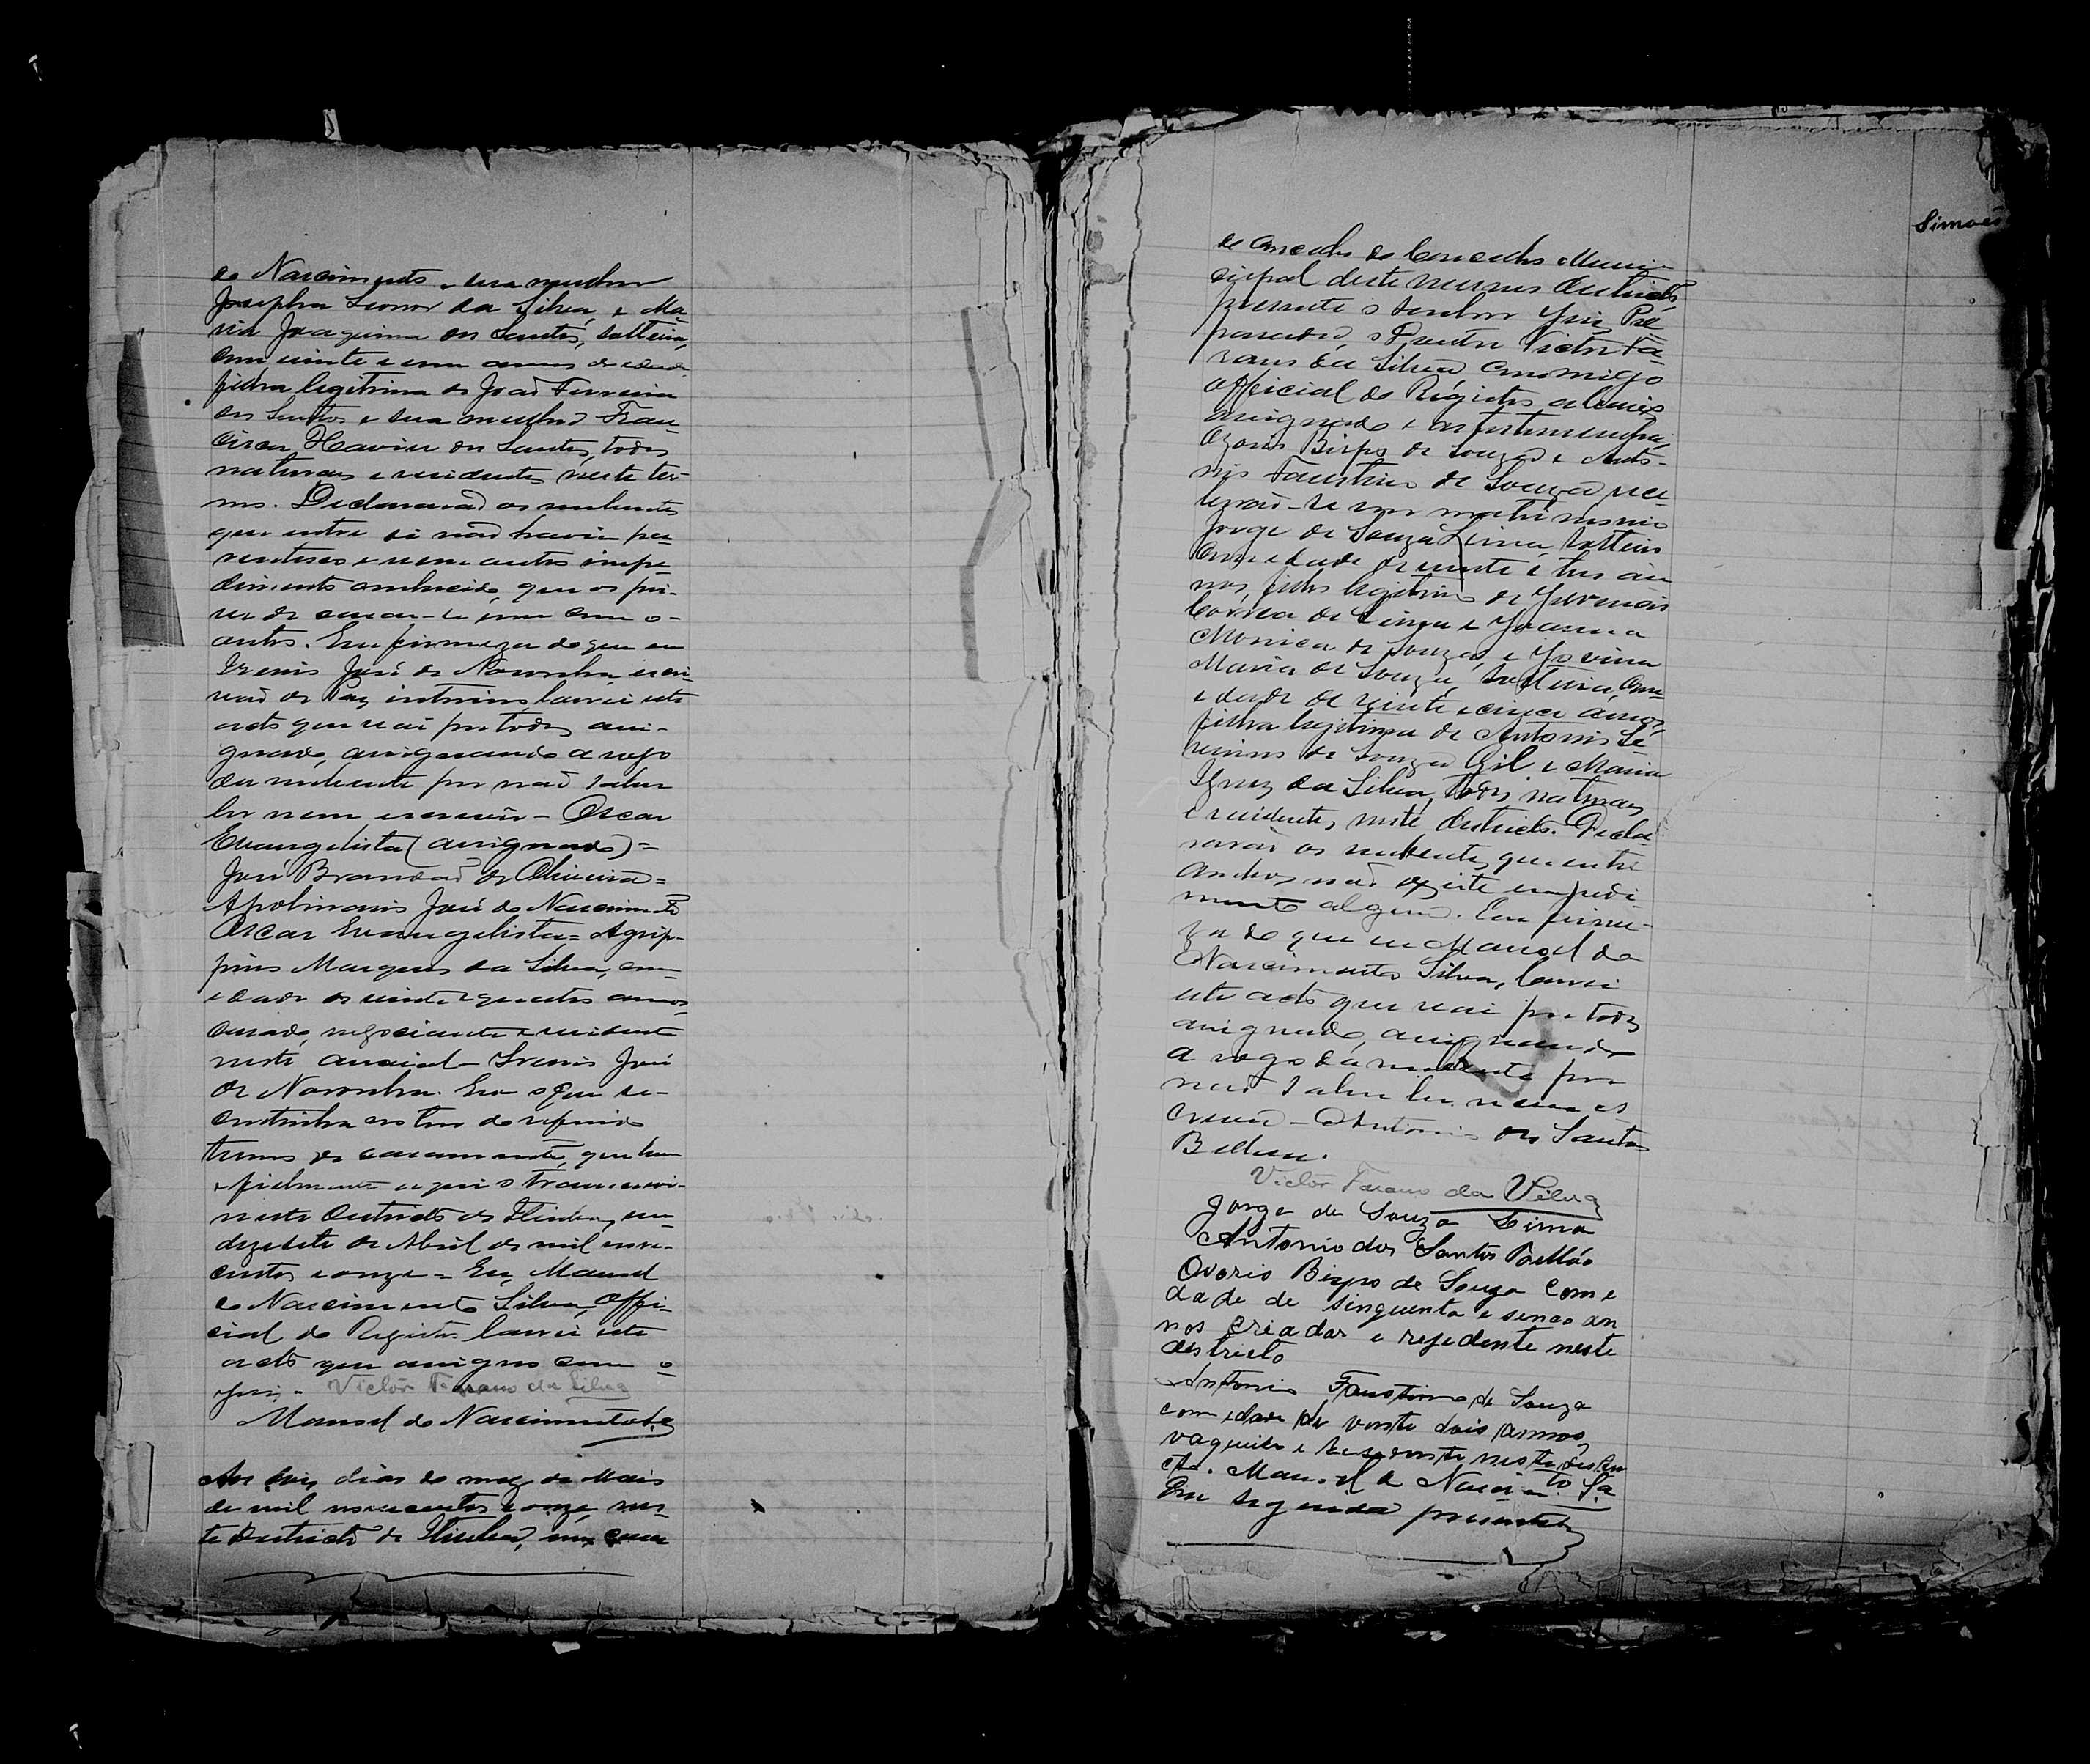 do Nascimento e sua mulher
Josepha Leonor da Silva, e Ma-
ria Joaquina dos Santos, solteira,
com vinte e um annos de edade
filha legitima de João Ferreira
dos Santos e sua mulher Fran-
cisca Flavia dos Santos, todos
naturaes e residentes neste ter-
mo. Declararão os nubentes
que entre si não havia pa-
rentesco e nem outro impe-
dimento conhecido, que os pri-
ve de casar-se um com o
outro. Em firmeza do que eu
Irenio José de Noronha, escri-
vão de Paz interino, lavrei este
acto que vai por todos assi-
gnado, assignando a rogo
da nubente por não saber
ler nem escrever - Oscar
Evangelista (assignado) =
José Brandão de Oliveira =
Apolinario José do Nascimento
Oscar Evangelista = Agrip-
pino Marques da Silva, com
edade de vinte e quatro annos
casado, negociante e residente
neste arraial - Irenio José
de Noronha. Era o que se
continha no livro do referido
termo de casamento, que bem
e fielmente aqui o transcrevi
neste Districto de, em
dezesete de Abril de mil nove-
centos e onze = Eu, Manoel
do Nascimento Silva, Offi-
cial do Registro lavrei este
acto que assigno com o
Juiz - Victor Farano da Silva
Manoel do Nascimento Sa
Aos dias do mez de Maio
de mil novecentos e onze, nes-
te Districto de, em casa
Simões
do Conselho do Conselho Muni-
cipal deste mesmo Districto,
presente o Senhor Juiz Pre
parador, o Doutor Victor Fa-
rano da Silva commigo
Official do Registro abaixo
assignado e as testemunhas
Ozorio Bispo de Souza e Anto-
nio Faustino de Souza, rece-
berão-se em matrimonio
Jorge de Souza Lima, solteiro
com edade de vinte e tres an
nos, filho legitimo de Juvencio
Correa de Lima e Joanna
Monica de Souza, e Jovina
Maria de Souza, solteira, com
edade de vinte e cinco annos,
filha legitima de Antonio Se-
verino de Souza Gil e Maria
Ignez da Silva, todos naturaes
e residentes neste Districto. Decla-
rarão os nubentes que entre
ambos não existe impedi-
mento algum. Em firme-
za do que eu Manoel do
Nascimento Silva, lavrei
este acto que vai por todos
assignado, assignando
a rogo da nubente por
não saber ler nem es
crever - Antonio dos Santos
Victor Farano da Silva
Jorge de Souza Lima
Antonio dos Santos
Ozorio Bispo de Souza com e
dade de sinquenta e senco an
nos criador e resedente neste
destricto
Antonio Faustino de Souza
com edade de vinte dois annos,
vaqueiro e neste
cto. Manoel do Nascimto Sa
Em seguida presente